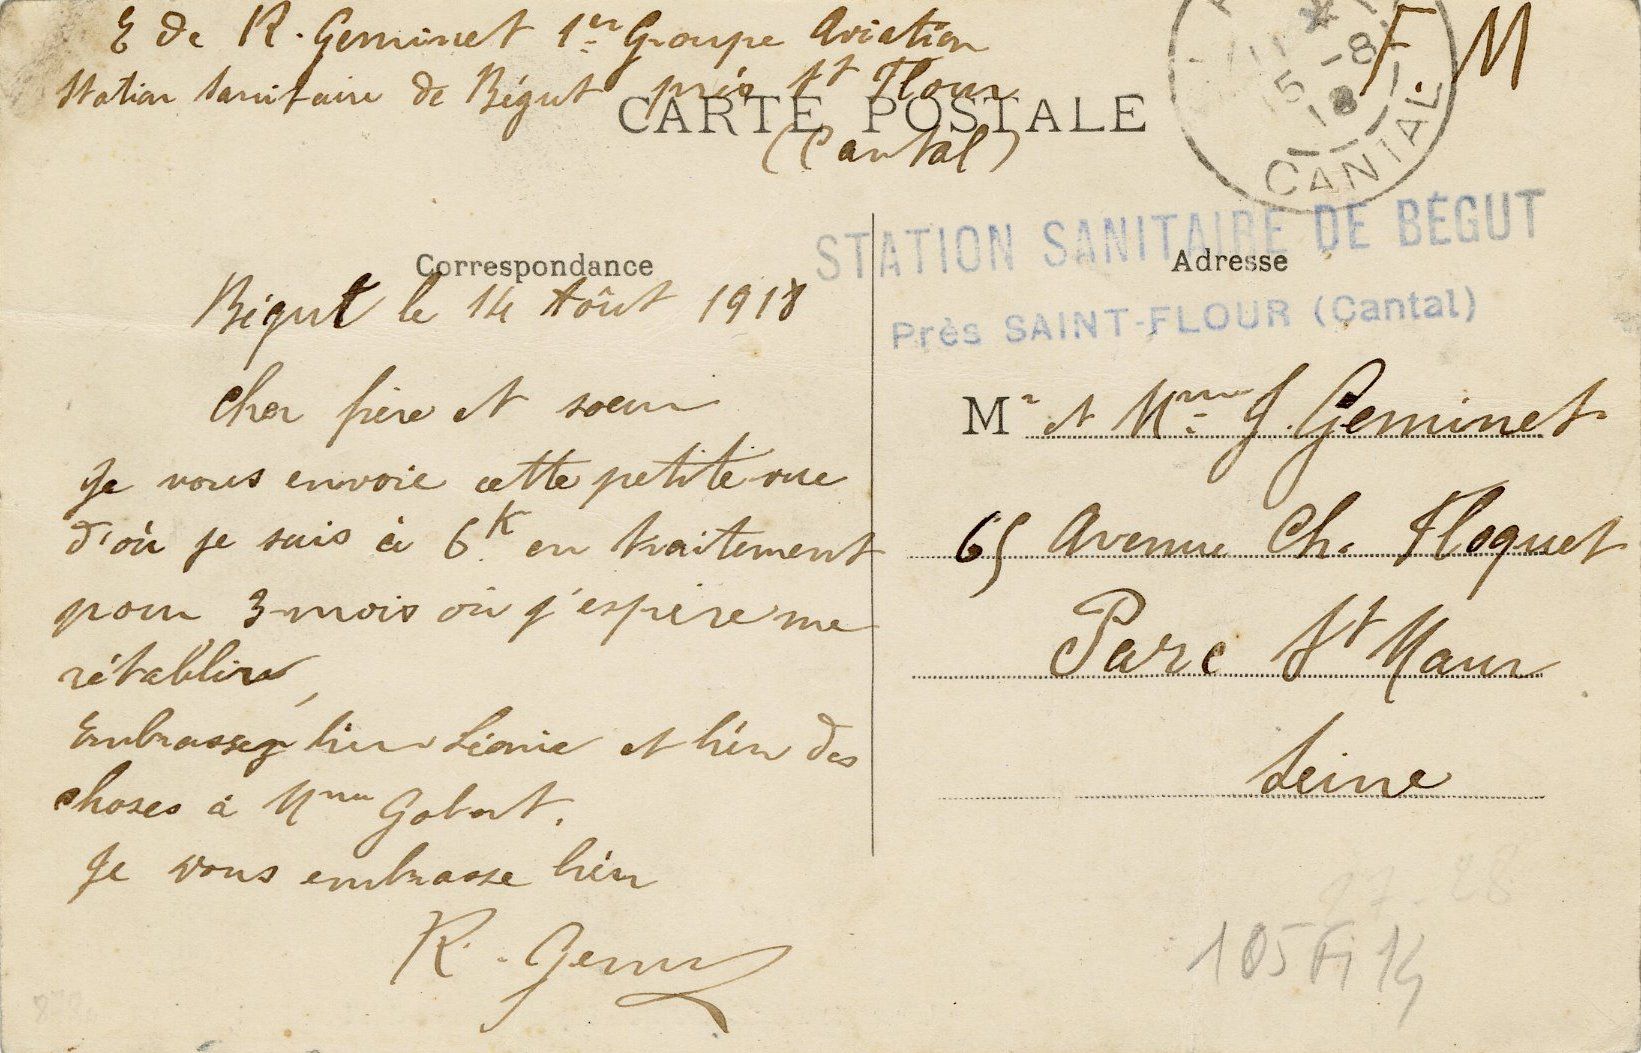 E de R. Geminet 1er Groupe Aviation
Station Sanitaire de Bégut près St Flour
(Cantal)
F M
CARTE POSTALE
5 -8
18
CANTAL
STATION SANITAIRE DE BÉGUT
Près SAINT-FLOUR (Cantal)
Correspondance
Bégut le 14 Août 1918
Cher frère et soeur
Je vous envoie cette petite vue
d'où je suis à 6K en traitement
pour 3 mois où j'espère me
rétablire,
Embrassez bien Léonie et bien des
choses à Mme Gobert.
Je vous embrasse bien
R. Gemi
Adresse
Mr et Mme J. Geminet
65 Avenue Ch. Floquet
Parc St Maur
Seine
27-28
105 Fi 14